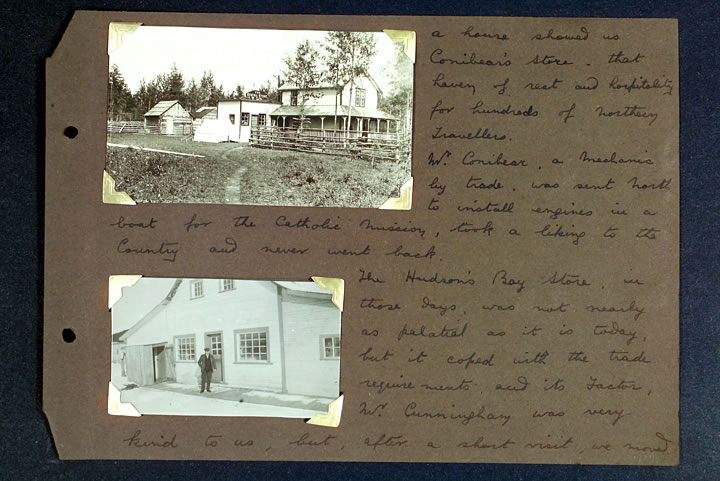 a house showed us
Conibear's Store - that
haven of rest and hospitality
for hundreds of Northern
Travellers.
Mr. Conibear, a Mechanic
by trade, was sent North
to install engines in a
boat for the Catholic Mission, took a liking to the
Country and never went back.
The Hudson's Bay Store, in
those days, was not nearly
as palatial as it is today,
but it coped with the trade
requirements and its Factor,
Mr. Cunningham was very
kind to us, but, after a short visit, we moved